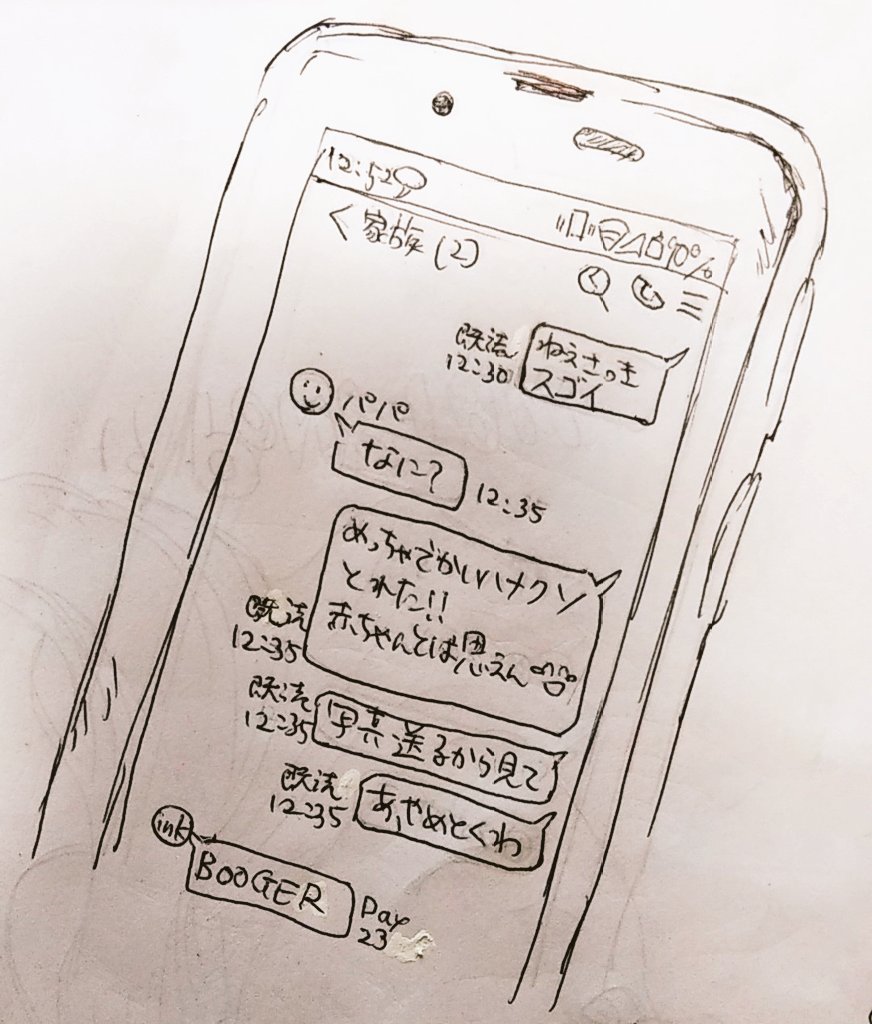 12:52
90%
< 家族 (2)
既読
12:30
ねえさっき
スゴイ
パパ
なに?
12:35
めっちゃでかいハナクソ
とれた!!
赤ちゃんとは思えん
既読
12:35
既読
12:35
写真送るから見て
既読
12:35
あ、やめとくわ
ink
BOOGER
Day
23